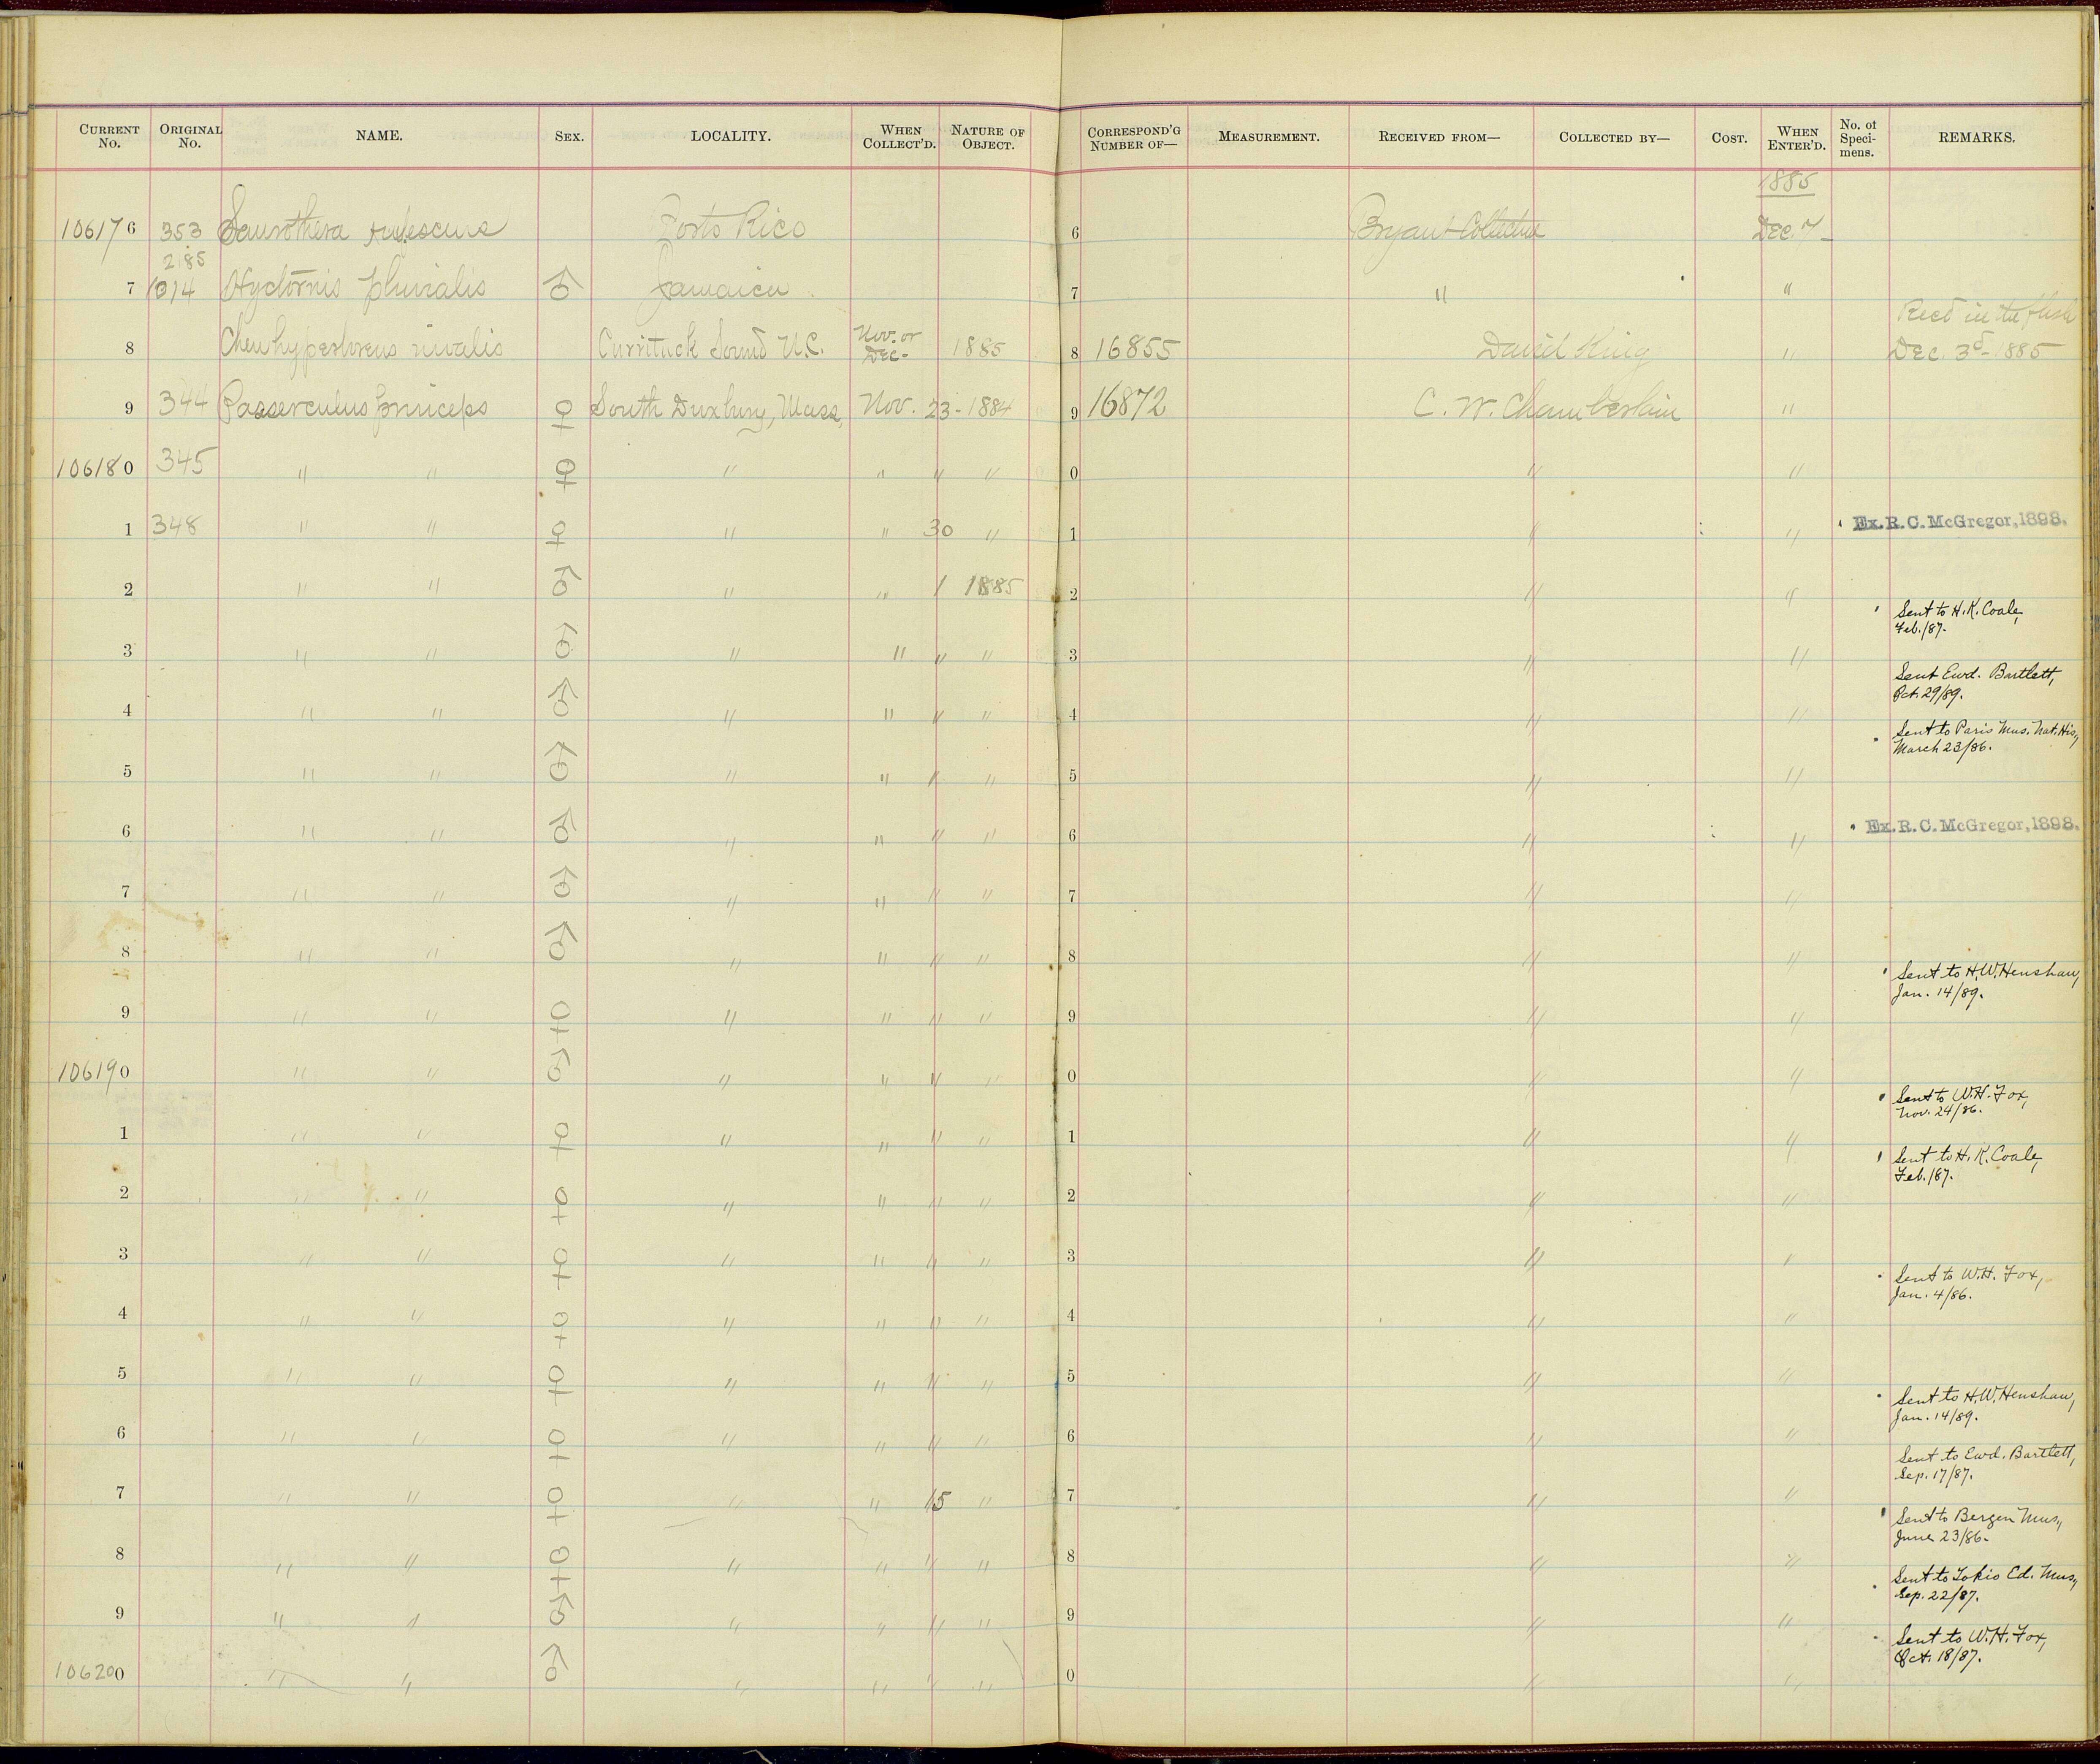 CURRENT No. ORIGINAL No. NAME. SEX. LOCALITY. WHEN COLLECT'D. NATURE OF OBJECT. CORRESPOND'G NUMBER OF— MEASUREMENT. RECEIVED FROM— COLLECTED BY— COST. WHEN ENTER'D. No. of Specimens. REMARKS.
1885
106176 353 Saurothera Porto Rico 6 Bryant Collection Dec. 7
2185
7 1014 Hyetornis pluvialis ♂ Jamaica 7 " "
Rec'd in the flesh
8 Chen hyperboreus nivalis Currituck Sound N.C. Nov. or Dec- 1885 8 16855 David King " Dec. 3d- 1885
9 344 Passerculus princeps ♀ South Duxbury, Mass, Nov. 23- 1884 9 16872 C. W. Chamberlain "
106180 345 " " ♀ " " " " 0 " "
1 348 " " ♀ " " 30 " 1 " " Ex. R. C. McGregor, 1898.
2 " " ♂ " " 1 1885 2 " "
Sent to H. K. Coale,
Feb./87.
3 " " ♂ " " " " 3 " "
Sent Ewd. Bartlett,
Oct. 29/89.
4 " " ♂ " " " " 4 " "
Sent to Paris Mus. Nat. His,
March 23/86.
5 " " ♂ " " " " 5 " "
6 " " ♂ " " " " 6 " " Ex. R. C. McGregor, 1898.
7 " " ♂ " " " " 7 " "
8 " " ♂ " " " " 8 " "
Sent to H. W. Henshaw,
Jan. 14/89.
9 " " ♀ " " " " 9 " "
106190 " " ♂ " " " " 0 " "
Sent to W. H. Fox,
Nov. 24/86.
1 " " ♀ " " " " 1 " "
Sent to H. K. Coale,
Feb./87.
2 " " ♀ " " " " 2 " "
3 " " ♀ " " " " 3 " "
Sent to W. H. Fox,
Jan. 4/86.
4 " " ♀ " " " " 4 " "
5 " " ♀ " " " " 5 " "
Sent to H. W. Henshaw,
Jan. 14/89.
6 " " ♀ " " " " 6 " "
Sent to Ewd. Bartlett,
Sep. 17/87.
7 " " ♀ " " 15 " 7 " "
Sent to Bergen Mus,
June 23/86.
8 " " ♀ " " " " 8 " "
Sent to Tokio Ed. Mus,
Sep. 22/87.
9 " " ♂ " " " " 9 " "
Sent to W. H. Fox,
Oct. 18/87.
106200 " " ♂ " " " " 0 " "